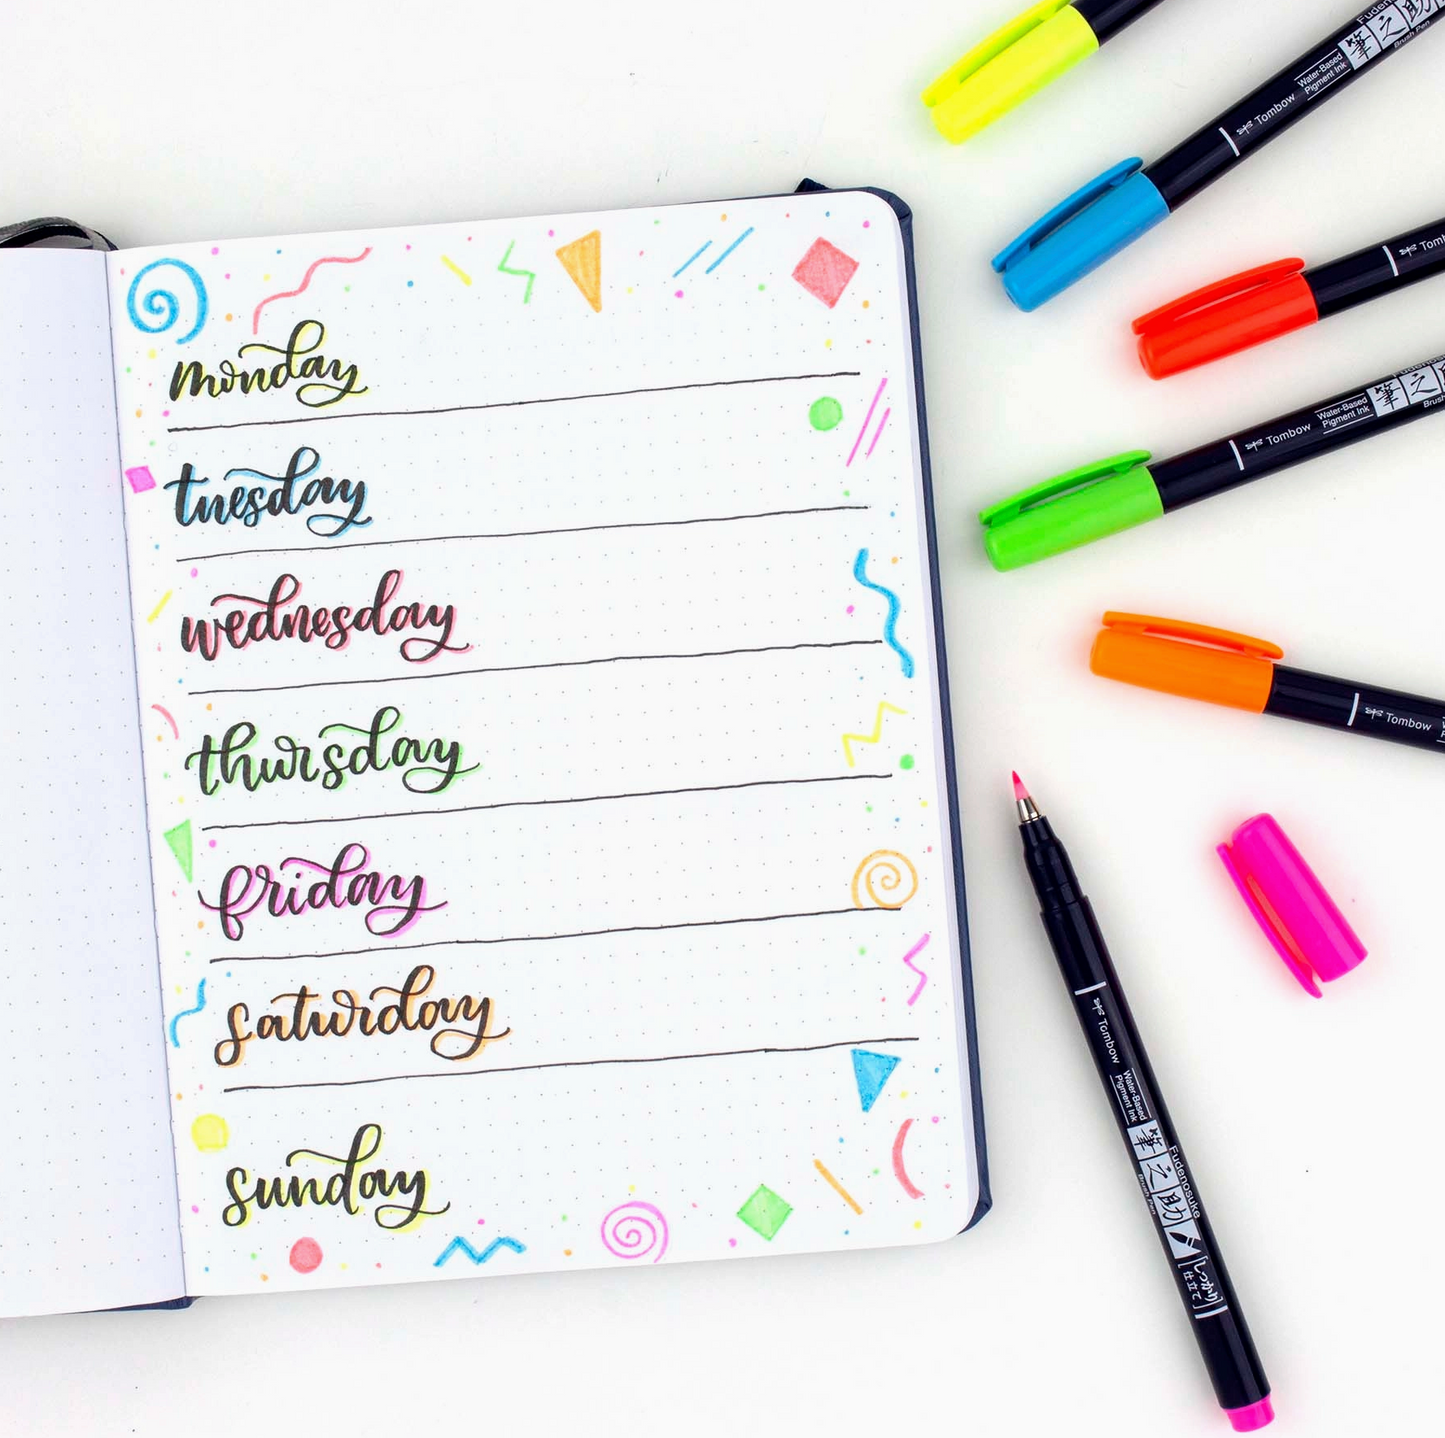 monday
tuesday
wednesday
thursday
friday
saturday
sunday
Tombow
Water-Based
Pigment Ink
筆之助
Fuden
Brush Pen
Tom
Tombow
Water-Based
Pigment Ink
筆之
Fudenosuke
Brush
Tombow
Tombow
Water-Based
Pigment Ink
筆之助
Fudenosuke
Brush Pen
しっかり
仕立て